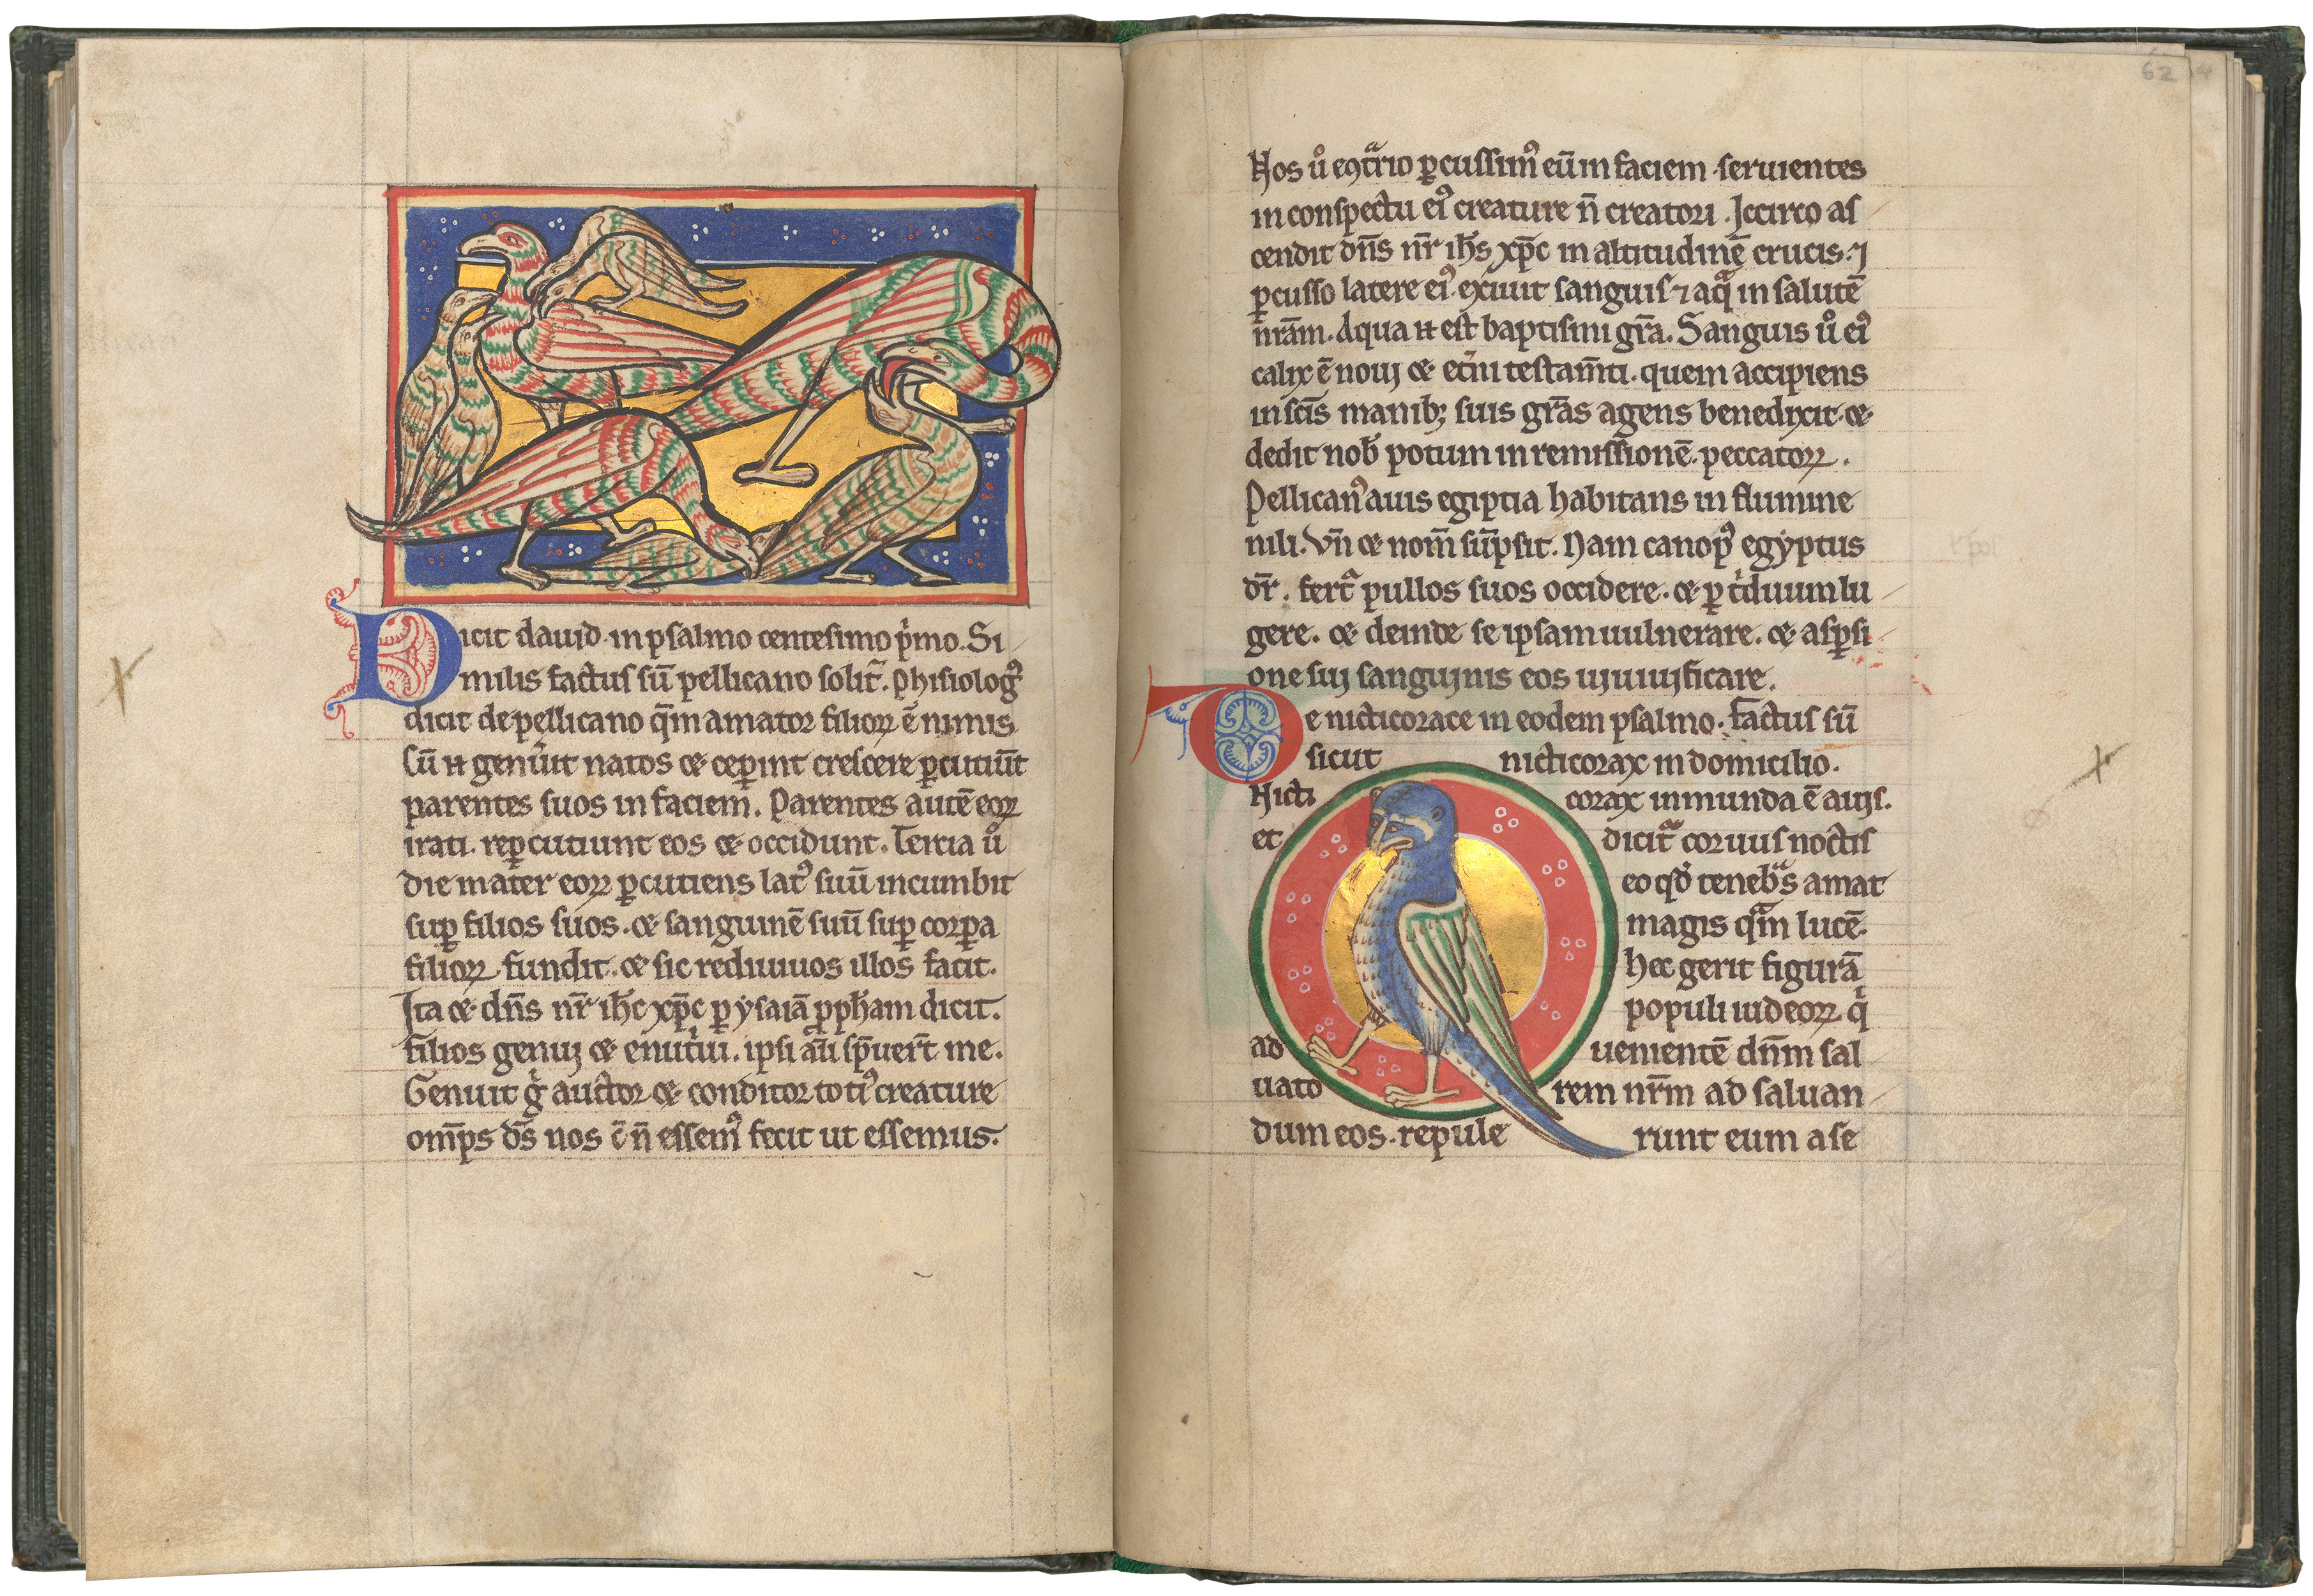 Dicit dauid in psalmo centesimo p̍mo. Si
milis factus sū pellicano solit̄. Phisiolog᾽
dicit de pellicano q̄m amator filioꝝ ē nimis
Cū ꞥ genuit natos ⁊ ceꝑint crescere ꝑcutiūt
parentes suos in faciem. Parentes autē eoꝝ
irati reꝑcutiunt eos ⁊ occidunt. Tercia u̾
die mater eoꝝ ꝑcutiens lat᾽ suū incumbit
suꝑ filios suos. ⁊ sanguinē suū suꝑ corꝑa
filioꝝ fundit. ⁊ sic rediuiuos illos facit.
Ita ⁊ dn̄s nr̄ ih̄c xp̄c ꝑ ẏsaiā ꝓph̄am dicit.
filios genui ⁊ enutͥui. ipsi aū sp̄uer̄t me.
Genuit gͥ auctor ⁊ conditor toti᾽ creature
om̄ps d̄s nos ⁊̄ n̄ essem᾽ fecit ut essemus.
62
Nos u̾ eꝯtͣrio ꝑcussim᾽ eū in faciem seruientes
in conspectu ei᾽ creature n̄ creatori. Iccirco as
cendit dn̄s nr̄ ih̄s xp̄c in altitudinē crucis. ⁊
ꝑcusso latere ei᾽ exiuit sanguis ⁊ aqͣ in salutē
nr̄am. Aqua ꞥ est baptismi gr̄a. Sanguis u̾ ei᾽
calix ē noui ⁊ et̾ni testam̄ti. quem accipiens
in sc̄is manibꝫ suis gr̄as agens benedixit ⁊
dedit nob̄ potum in remissionē peccatoꝝ.
Pellican᾽ auis egiptia habitans in flumine
nili. Vn̄ ⁊ nom̄ sūpsit. Nam canop᾽ egẏptus
dr̄. fertͣ pullos suos occidere. ⁊ ꝑ tͥduum lu
gere. ⁊ deinde se ipsam uulnerare. ⁊ asꝑsi
one sui sanguinis eos uiuificare.
De nicticorace in eodem psalmo. Factus sū
sicut nicticorax in domicilio.
Nicticorax inmunda ē auis.
et dicitͣ coruus noctis
eo qd̾ tenebͣs amat
magis qͣm lucē.
hec gerit figurā
populi iudeoꝝ qͥ
ad uenientē dn̄m sal
uatorem nr̄m ad saluan
dum eos. repulerunt eum a se